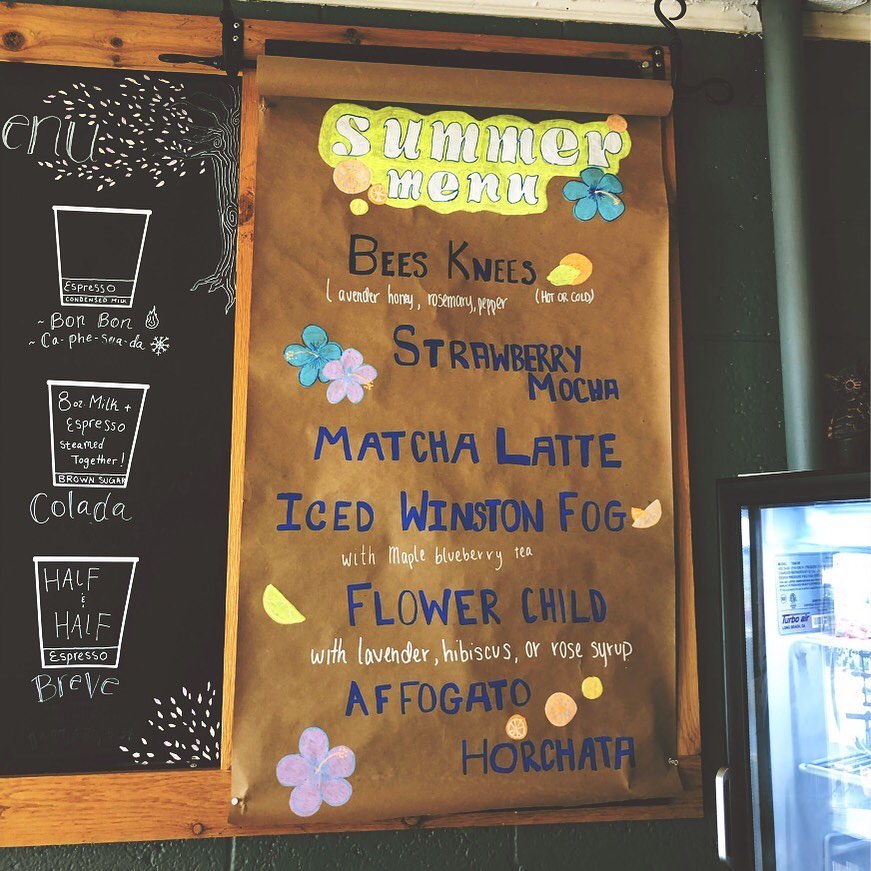 enu
Espresso
CONDENSED MILK
~Bon Bon
~Ca-phe-sua-da
8oz. Milk +
Espresso
Steamed
Together!
BROWN SUGAR
Colada
HALF
&
HALF
Espresso
Breve
Summer
menu
BEES KNEES
lavender honey, rosemary, pepper (HOT OR COLD)
STRAWBERRY
MOCHA
MATCHA LATTE
ICED WINSTON FOG
with Maple blueberry tea
FLOWER CHILD
with lavender, hibiscus, or rose syrup
AFFOGATO
HORCHATA
Turbo air